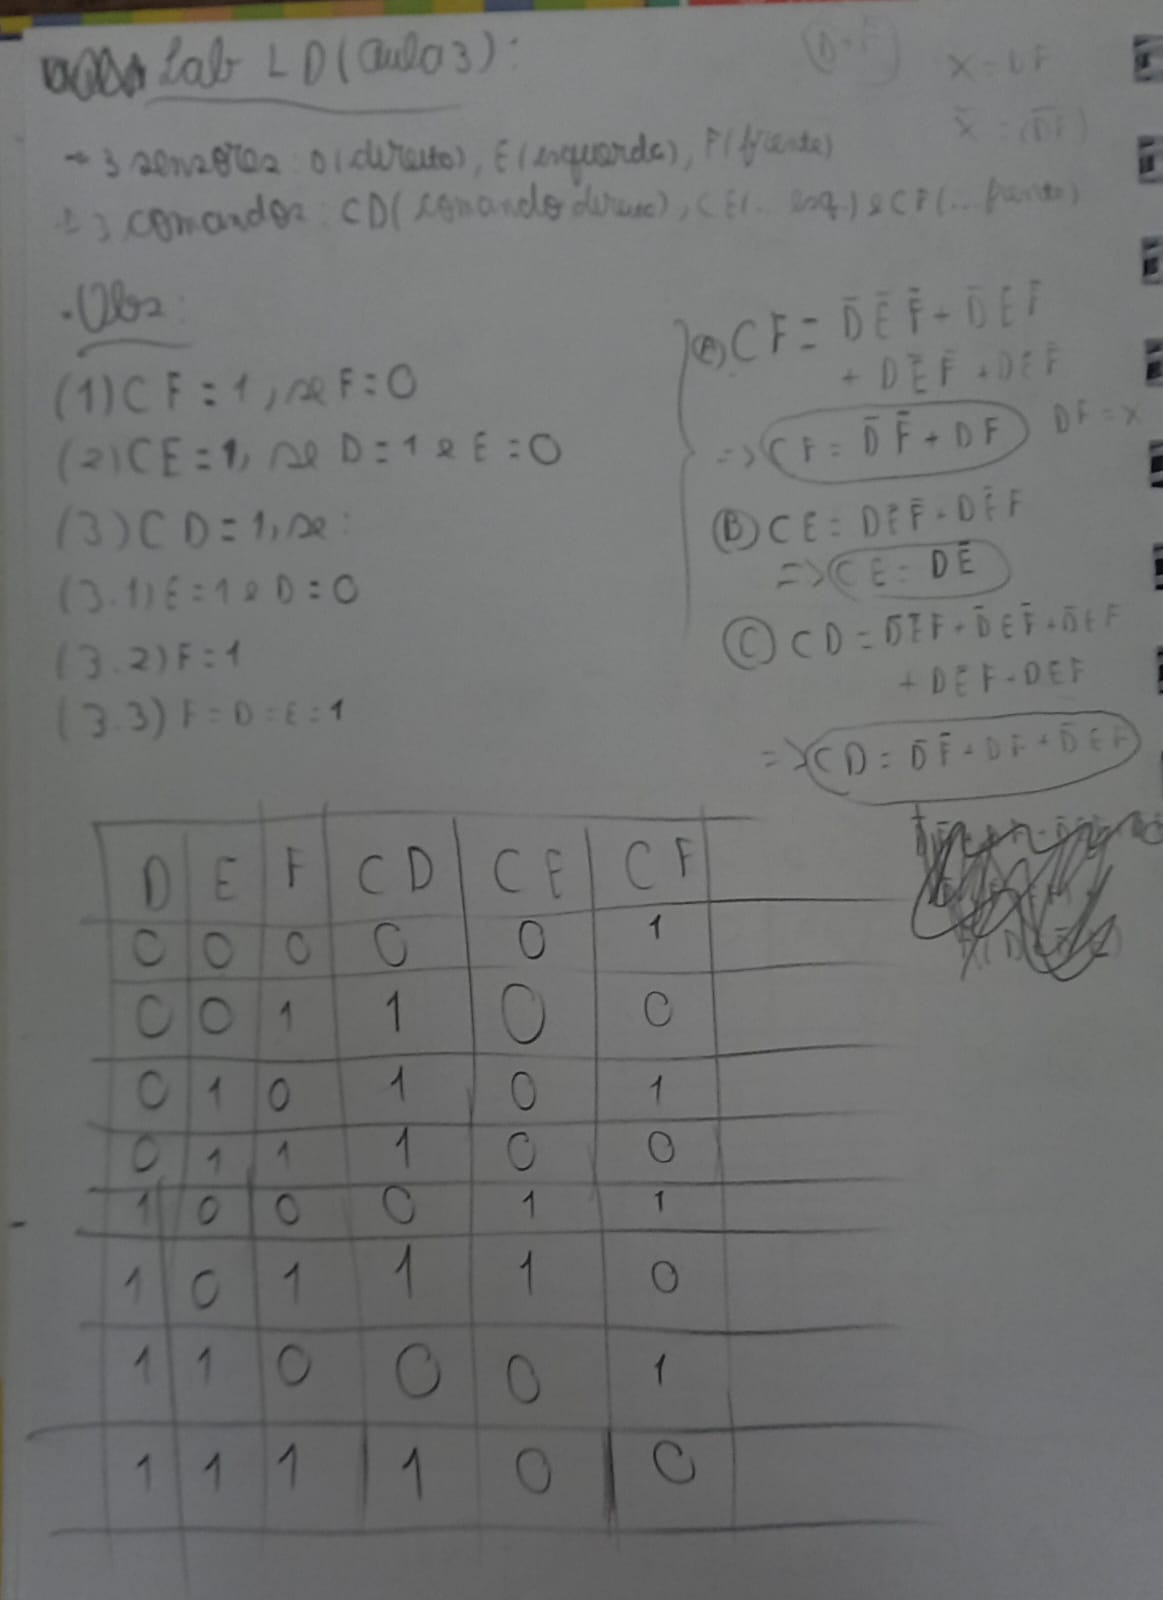 Lab LD (aula 3):
→ 3 sensores: D(direito), E(esquerda), F(frente)
→ 3 comandos: CD(comando direito), CE(... esq.) e CF(... frente)
X = DF
• Obs:
(1) CF = 1, se F = 0
(2) CE = 1, se D = 1 e E = 0
(3) CD = 1, se:
(3.1) E = 1 e D = 0
(3.2) F = 1
(3.3) F = D = E = 1
(A) CF = D̄ Ē F̄ + D̄ E F̄
+ D Ē F̄ + D E F̄
=> CF = D̄ F̄ + D F
DF = X
(B) CE = D Ē F̄ + D Ē F
=> CE = D Ē
(C) CD = D̄ Ē F + D̄ E F̄ + D̄ E F
+ D Ē F + D E F
=> CD = D̄ F̄ + D F + D̄ E F
D E F CD CE CF
0 0 0 0 0 1
0 0 1 1 0 0
0 1 0 1 0 1
0 1 1 1 0 0
1 0 0 0 1 1
1 0 1 1 1 0
1 1 0 0 0 1
1 1 1 1 0 0